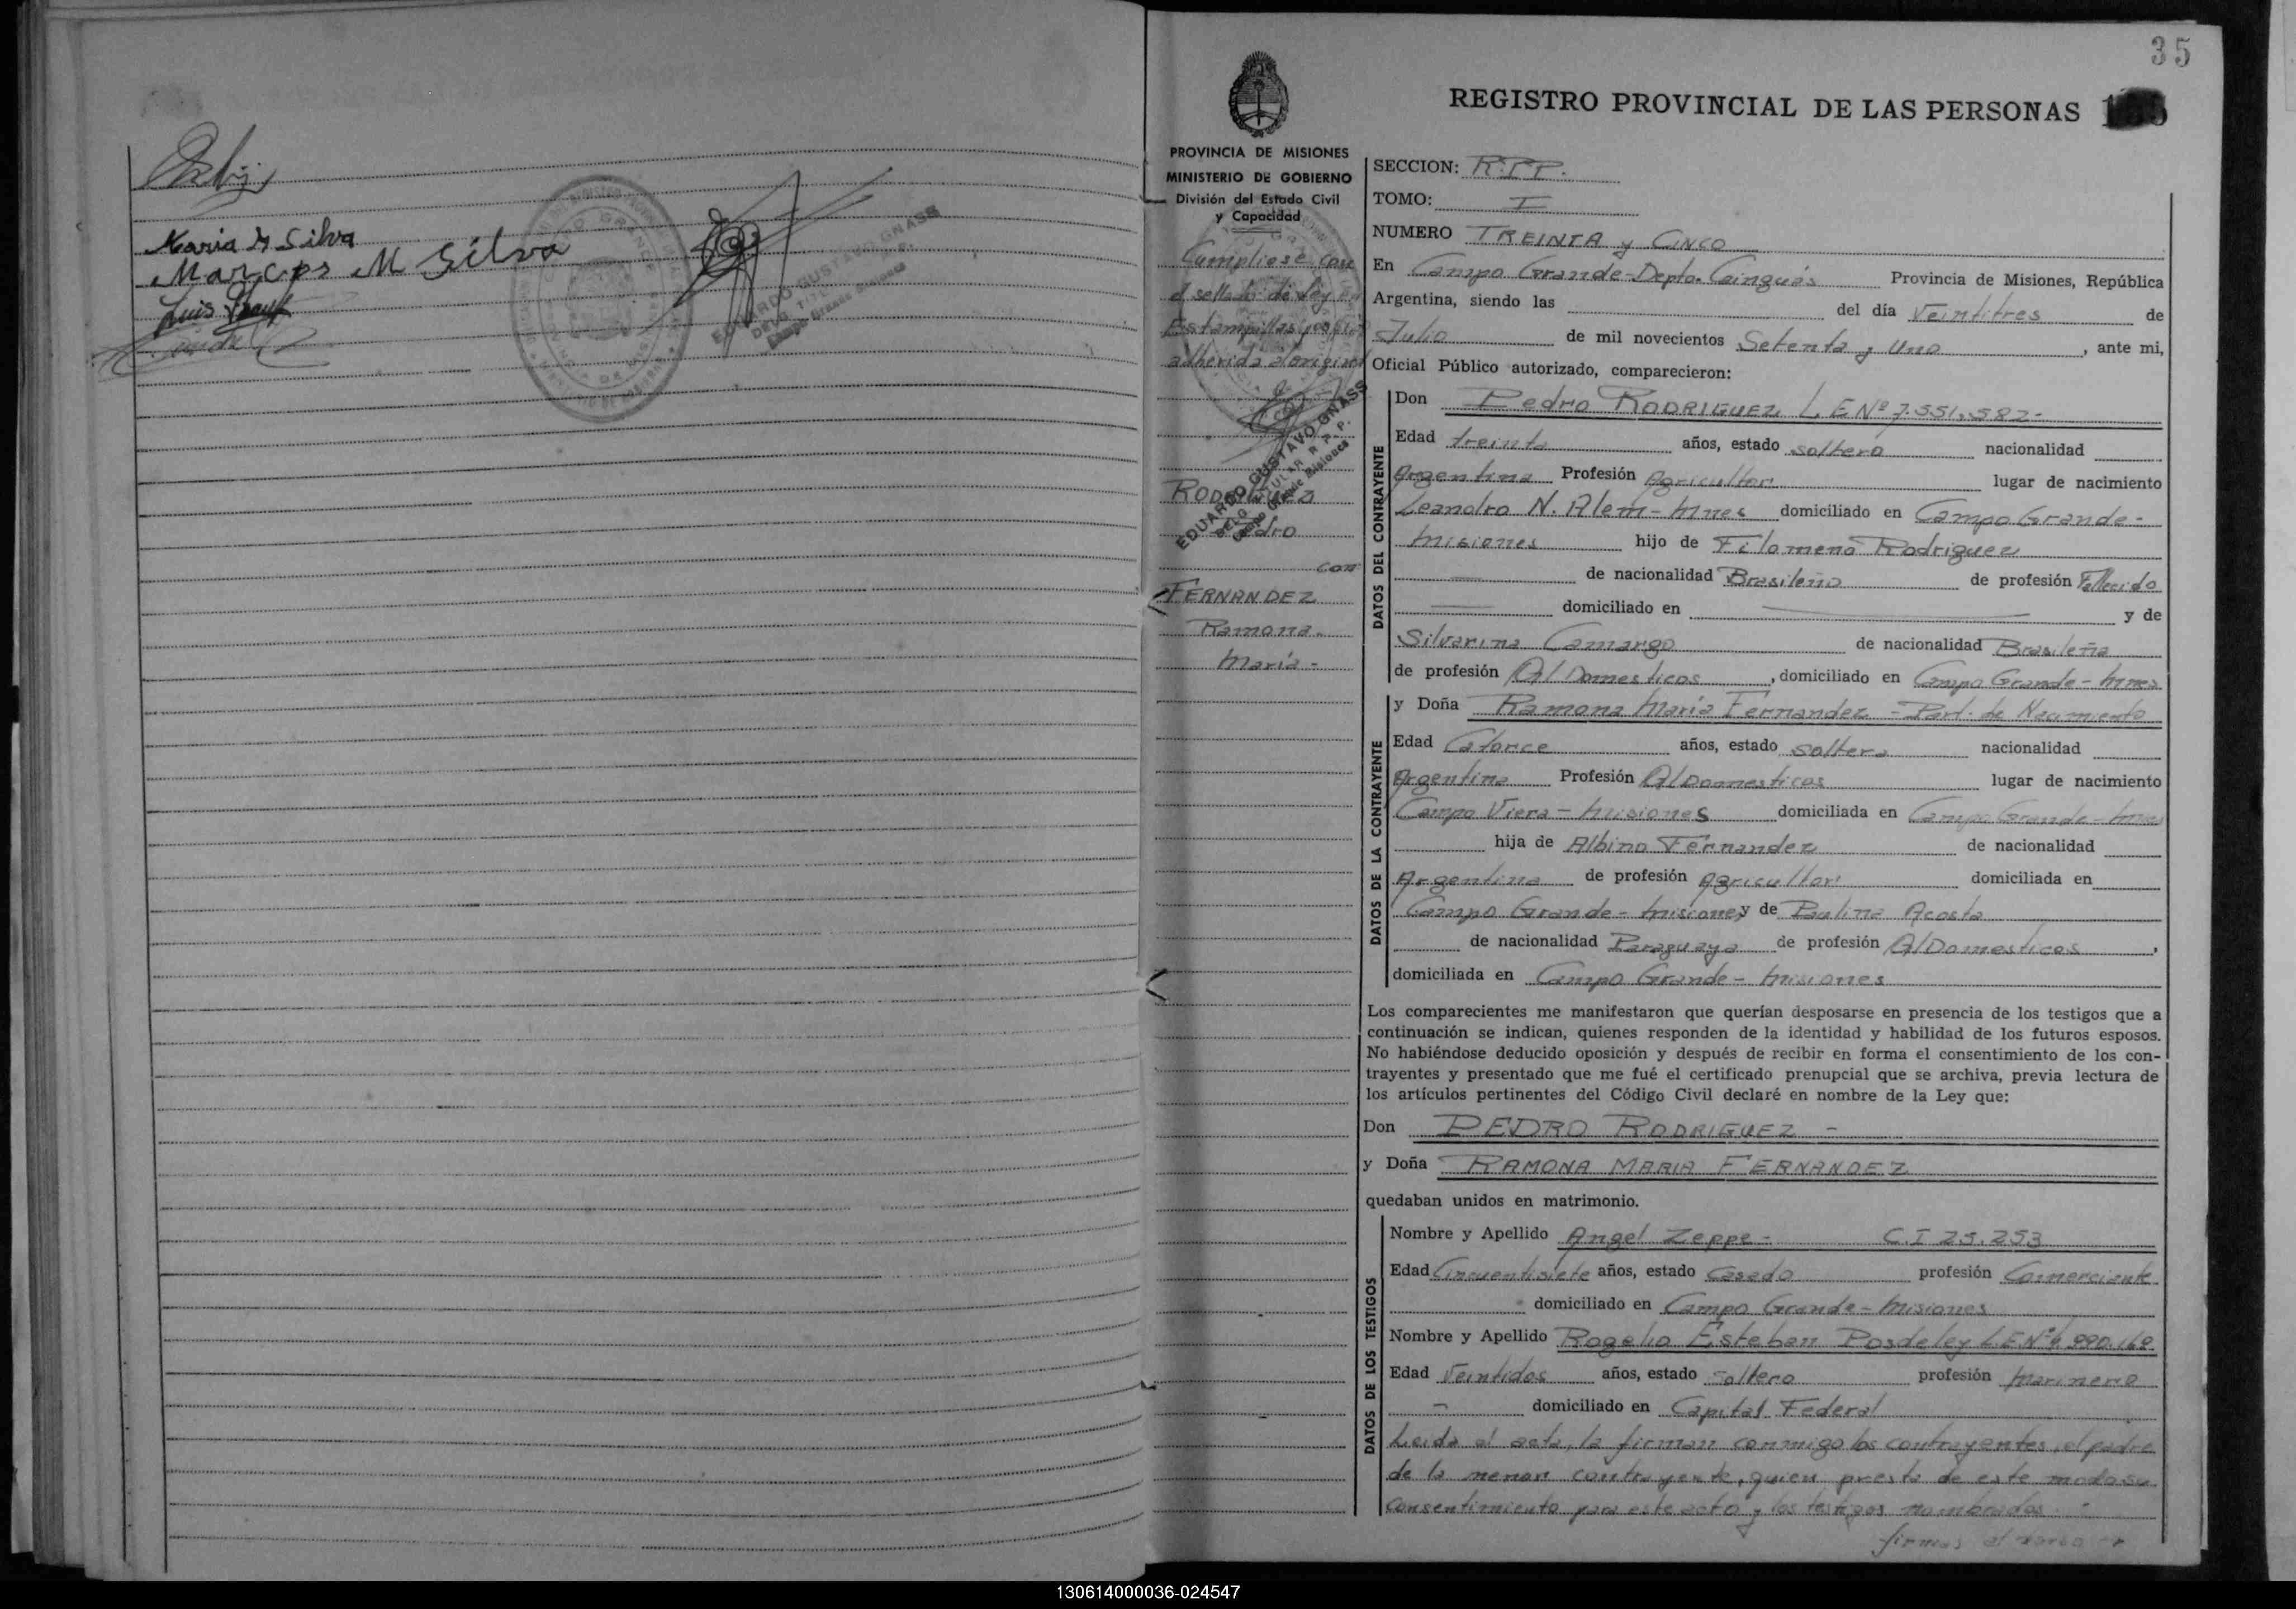 Maria M Silva
Marcos M Silva
Luis
EDUARDO GUSTAVO GNASS
DELG. TITULAR R. P. P.
Campo Grande Misiones
35
REGISTRO PROVINCIAL DE LAS PERSONAS
PROVINCIA DE MISIONES
MINISTERIO DE GOBIERNO
División del Estado Civil
y Capacidad
Cumpliese con
el sellado de ley en
Estampillas
adherida al original
EDUARDO GUSTAVO GNASS
DELG. TITULAR R. P. P.
Campo Grande Misiones
RODRIGUEZ
Pedro
con
FERNANDEZ
Ramona
María -
SECCION: R.P.P.
TOMO: I
NUMERO TREINTA y CINCO
En Campo Grande - Depto. Cainguás Provincia de Misiones, República
Argentina, siendo las del día Veintitres de
Julio de mil novecientos Setenta y Uno, ante mi,
Oficial Público autorizado, comparecieron:
DATOS DEL CONTRAYENTE
Don Pedro RODRIGUEZ L.E Nº 7.551.582-
Edad treinta años, estado soltero nacionalidad
Argentina Profesión Agricultor lugar de nacimiento
Leandro N. Alem - Mnes domiciliado en Campo Grande -
Misiones hijo de Filomeno Rodriguez
de nacionalidad Brasileño de profesión Fallecido
domiciliado en y de
Silvarina Camargo de nacionalidad Brasileña
de profesión Q/Domesticos, domiciliado en Campo Grande - Mnes
DATOS DE LA CONTRAYENTE
y Doña Ramona María Fernandez - Part. de Nacimiento
Edad Catorce años, estado soltera nacionalidad
Argentina Profesión Q/Domesticos lugar de nacimiento
Campo Viera - Misiones domiciliada en Campo Grande - Mnes
hija de Albino Fernandez de nacionalidad
Argentina de profesión Agricultor domiciliada en
Campo Grande - Misiones y de Paulina Acosta
de nacionalidad Paraguaya de profesión Q/Domesticos,
domiciliada en Campo Grande - Misiones
Los comparecientes me manifestaron que querían desposarse en presencia de los testigos que a
continuación se indican, quienes responden de la identidad y habilidad de los futuros esposos.
No habiéndose deducido oposición y después de recibir en forma el consentimiento de los con-
trayentes y presentado que me fué el certificado prenupcial que se archiva, previa lectura de
los artículos pertinentes del Código Civil declaré en nombre de la Ley que:
Don PEDRO RODRIGUEZ -
y Doña RAMONA MARIA FERNANDEZ
quedaban unidos en matrimonio.
DATOS DE LOS TESTIGOS
Nombre y Apellido Angel Zeppe - C.I 25.253
Edad Cincuentisiete años, estado Casado profesión Comerciante
domiciliado en Campo Grande - Misiones
Nombre y Apellido Rogelio Esteban Posdeley L.E.Nº 4.990.168
Edad Veintidos años, estado soltero profesión Marinero
- domiciliado en Capital Federal
Leida el acta, la firman conmigo los contrayentes, el padre
de la menor contrayente, quien presta de este modo su
consentimiento para este acto y los testigos nombrados -
firmas al dorso
130614000036-024547